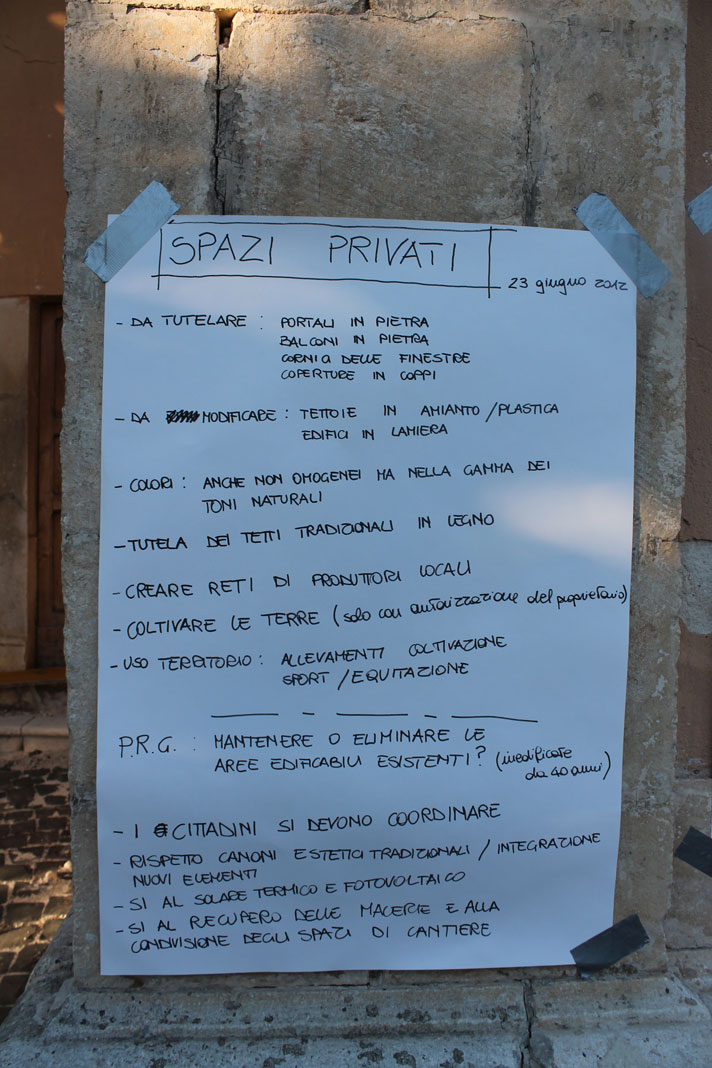 SPAZI PRIVATI
23 giugno 2012
- DA TUTELARE : PORTALI IN PIETRA
BALCONI IN PIETRA
CORNICI DELLE FINESTRE
COPERTURE IN COPPI
- DA MODIFICARE : TETTOIE IN AMIANTO / PLASTICA
EDIFICI IN LAMIERA
- COLORI : ANCHE NON OMOGENEI MA NELLA GAMMA DEI
TONI NATURALI
- TUTELA DEI TETTI TRADIZIONALI IN LEGNO
- CREARE RETI DI PRODUTTORI LOCALI
- COLTIVARE LE TERRE (solo con autorizzazione del proprietario)
- USO TERRITORIO : ALLEVAMENTI COLTIVAZIONE
SPORT / EQUITAZIONE
P.R.G. : MANTENERE O ELIMINARE LE
AREE EDIFICABILI ESISTENTI? (inedificate
da 40 anni)
- I CITTADINI SI DEVONO COORDINARE
- RISPETTO CANONI ESTETICI TRADIZIONALI / INTEGRAZIONE
NUOVI ELEMENTI
- SI AL SOLARE TERMICO E FOTOVOLTAICO
- SI AL RECUPERO DELLE MACERIE E ALLA
CONDIVISIONE DEGLI SPAZI DI CANTIERE